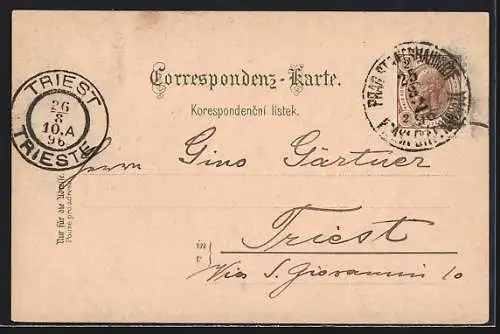 Correspondenz-Karte.
Korespondenční lístek.
TRIEST
26
8
10.A
96
TRIESTE
Herrn Gino Gärtner
in
v
Triest
Via S. Giovanni 10
Nur für die Adresse.
Pouze pro adresu.
PRAG STAATSBAHNHOF